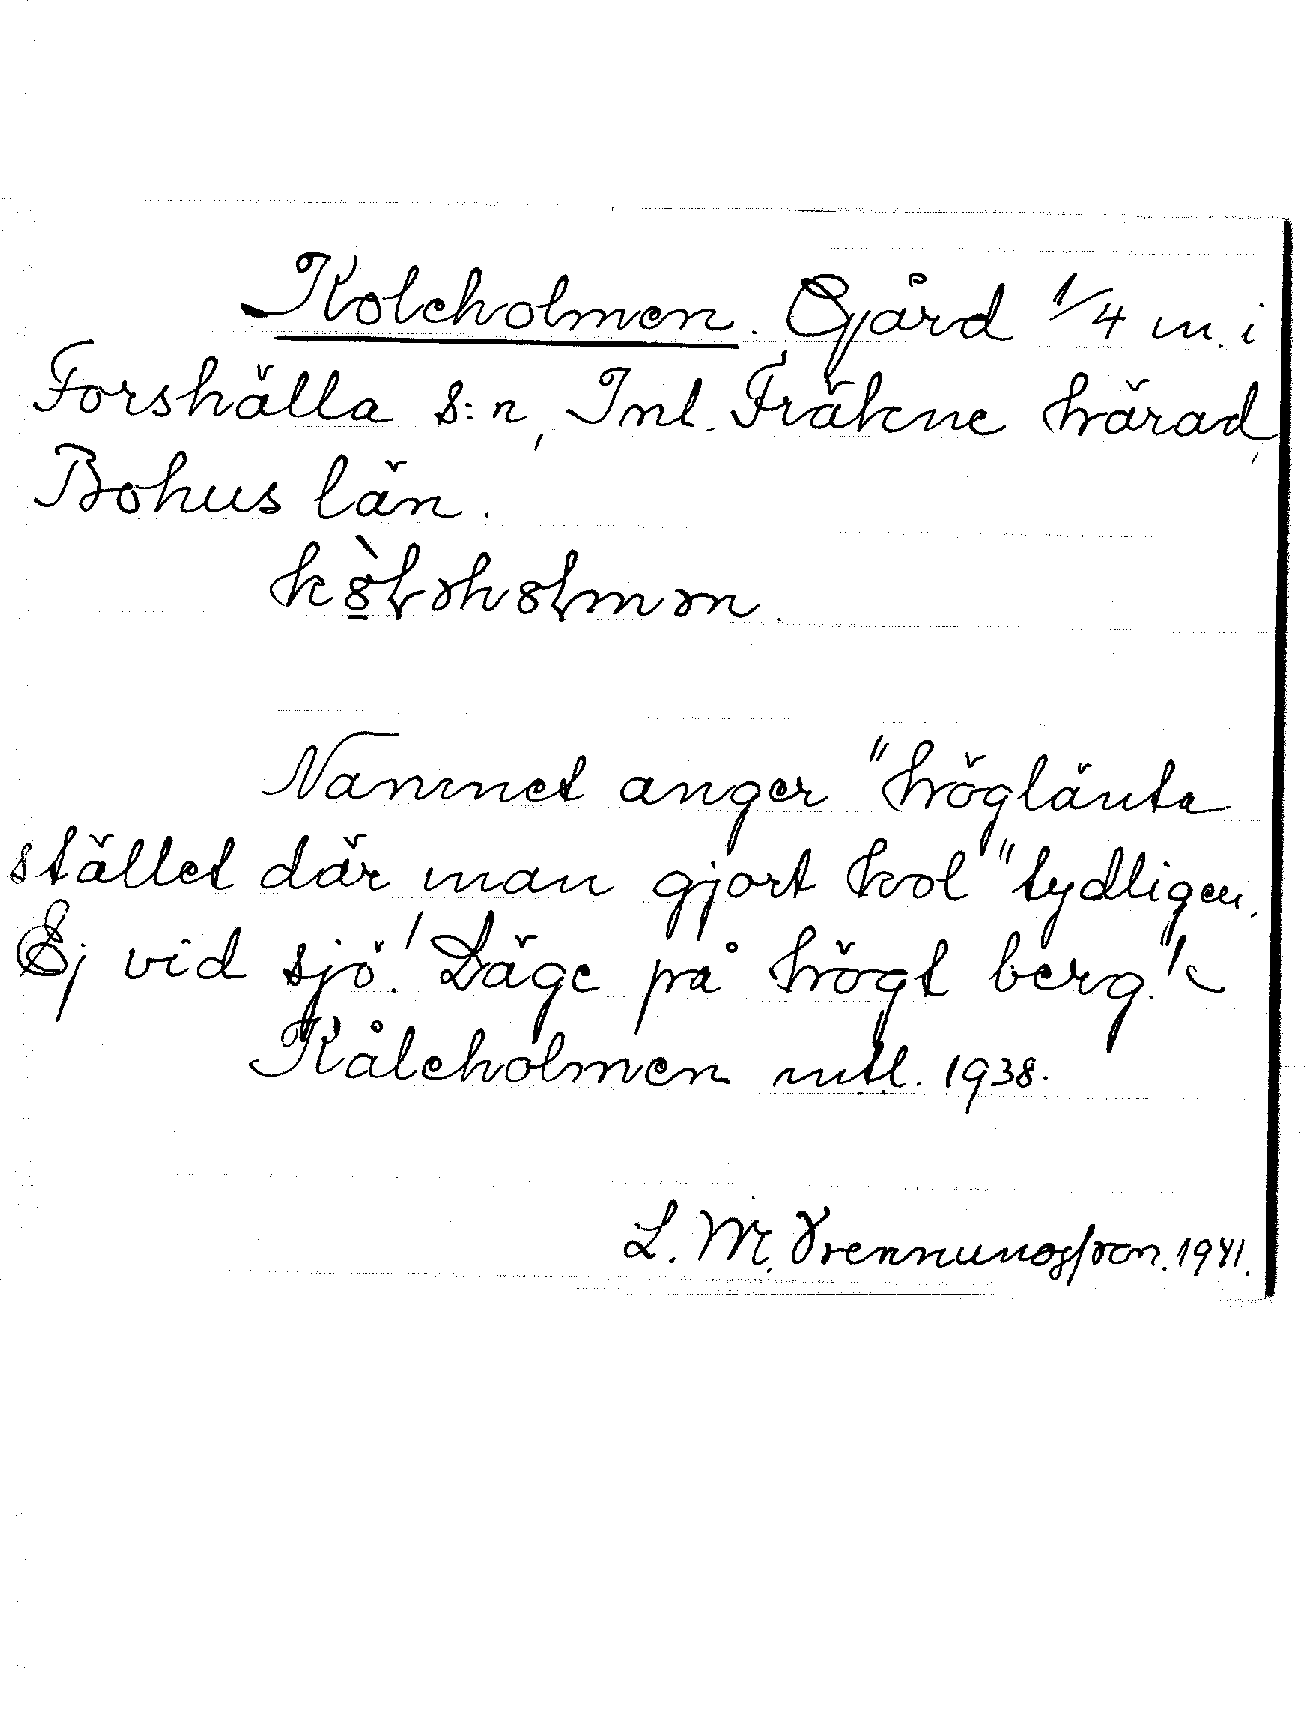 Koleholmen. Gård 1/4 m. i
Forshälla s:n, Inl. Fräkne härad,
Bohus län.
Namnet anger "höglänta
stället där man gjort kol" tydligen.
Ej vid sjö! Läge på högt berg!
Kåleholmen mtl. 1938.
L. M. 1941.